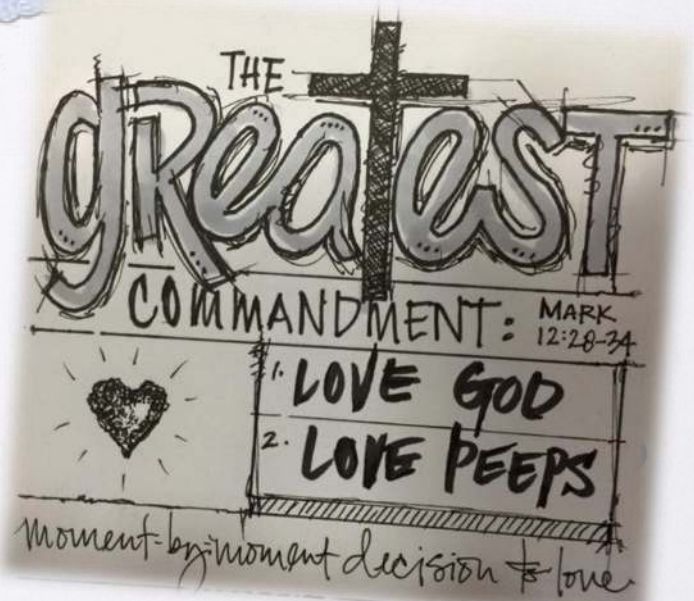 THE
gReatesT
COMMANDMENT:
MARK
12:28-34
1. LOVE GOD
2. LOVE PEEPS
moment-by-moment decision to love